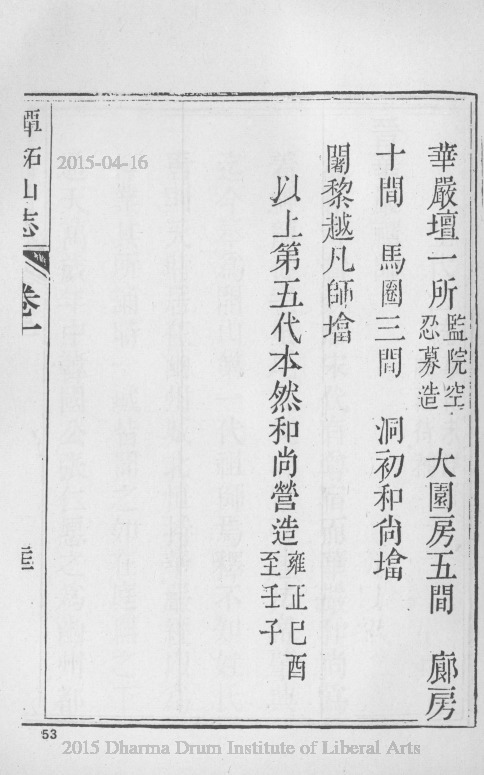 華嚴壇一所監院空忍募造 大園房五間 廊房
十間 馬圈三間 洞初和尚墖
闍黎越凡師墖
以上第五代本然和尚營造雍正巳酉至壬子
潭柘山志 卷一
53
2015-04-16
2015 Dharma Drum Institute of Liberal Arts